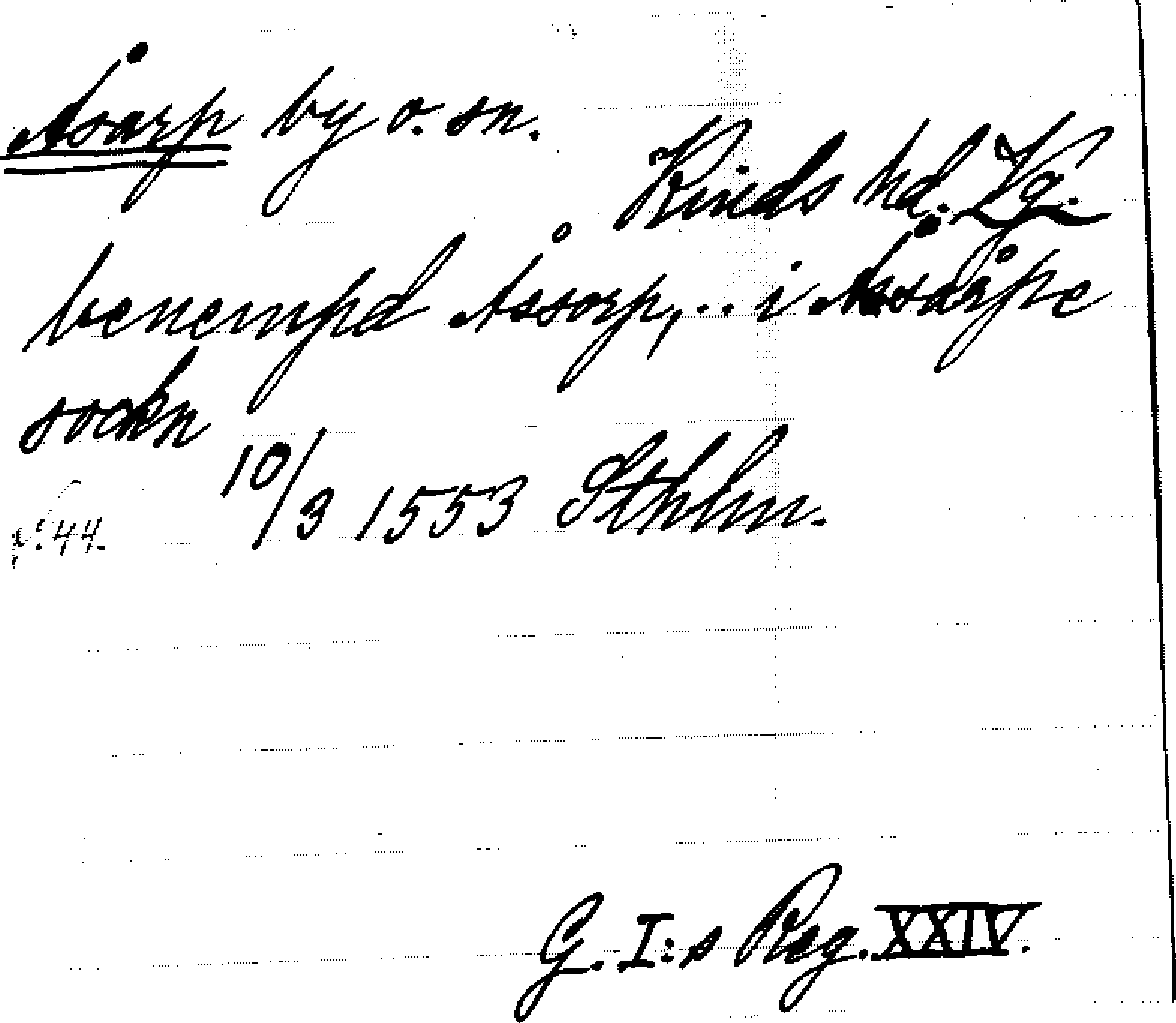 Åsarp by o. sn.
Kinds hd. Vg.
benempd Åssorp, .. i Åssårpe
sockn
10/3 1553 Sthlm.
s. 44.
G. I:s Reg. XXIV.